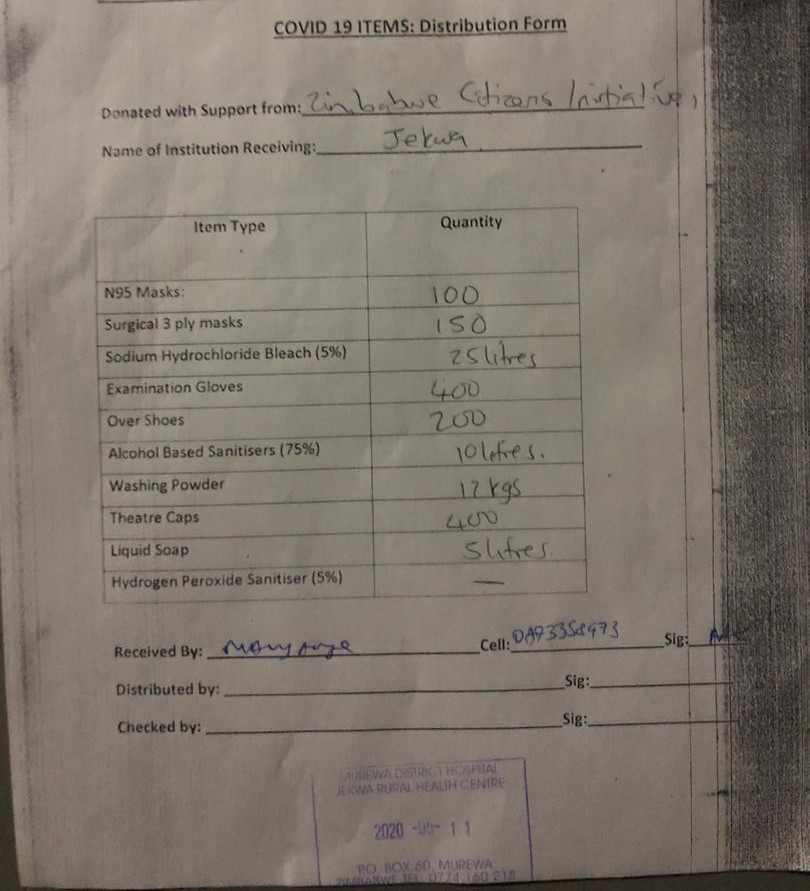 COVID 19 ITEMS: Distribution Form
Donated with Support from: Zimbabwe Citizens Initiative,
Name of Institution Receiving: Jekwa
Item Type Quantity
N95 Masks: 100
Surgical 3 ply masks 150
Sodium Hydrochloride Bleach (5%) 25 litres
Examination Gloves 400
Over Shoes 200
Alcohol Based Sanitisers (75%) 10 litres.
Washing Powder 12 kgs
Theatre Caps 400
Liquid Soap 5 litres
Hydrogen Peroxide Sanitiser (5%) —
Received By: Cell: Sig:
Distributed by: Sig:
Checked by: Sig:
MUREWA DISTRICT HOSPITAL
JEKWA RURAL HEALTH CENTRE
2020 11
P.O. BOX 60, MUREWA
ZIMBABWE TEL: 0774 160 218